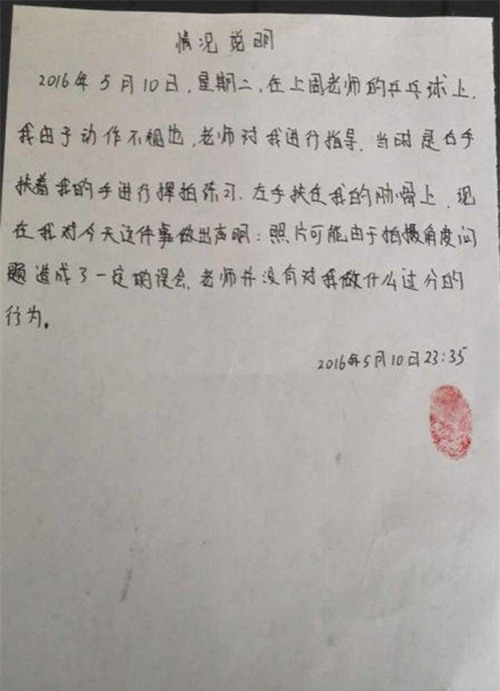 情况说明
2016年5月10日，星期二，在上周老师的乒乓球上，
我由于动作不规范，老师对我进行指导，当时是右手
扶着我的手进行挥拍练习，左手扶在我的肋骨上，现
在我对今天这件事做出声明：照片可能由于拍摄角度问
题造成了一定的误会，老师并没有对我做什么过分的
行为。
2016年5月10日23:35